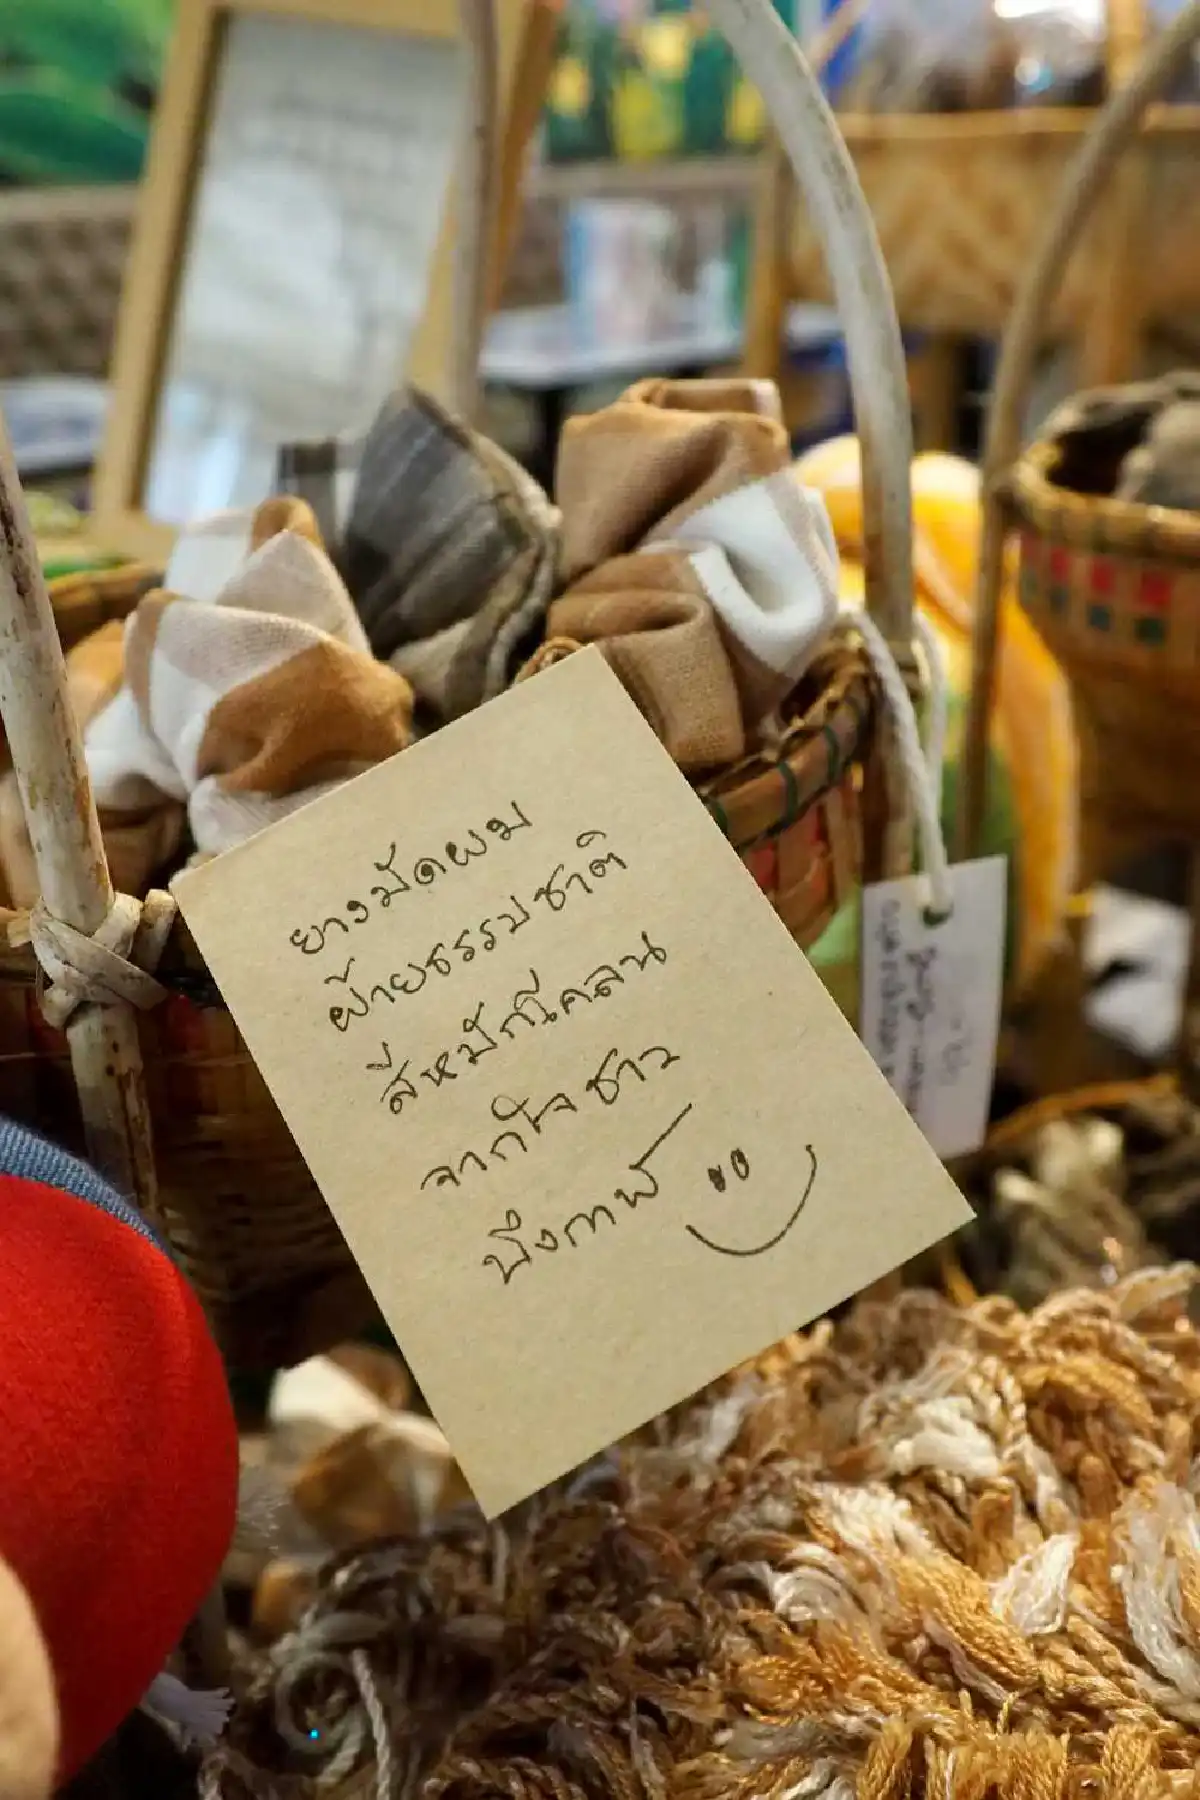 ยางมัดผม
ฝ้ายธรรมชาติ
สีหมักโคลน
จากใจชาว
บึงกาฬ